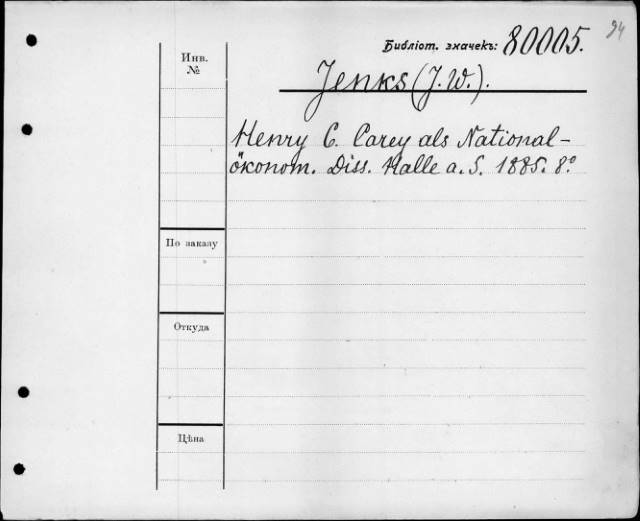 94
Библіот. значекъ: 80005.
Инв.
№
Jenks (J. W.).
Henry C. Carey als National-
ökonom. Diss. Halle a. S. 1885. 8°.
По заказу
Откуда
Цѣна